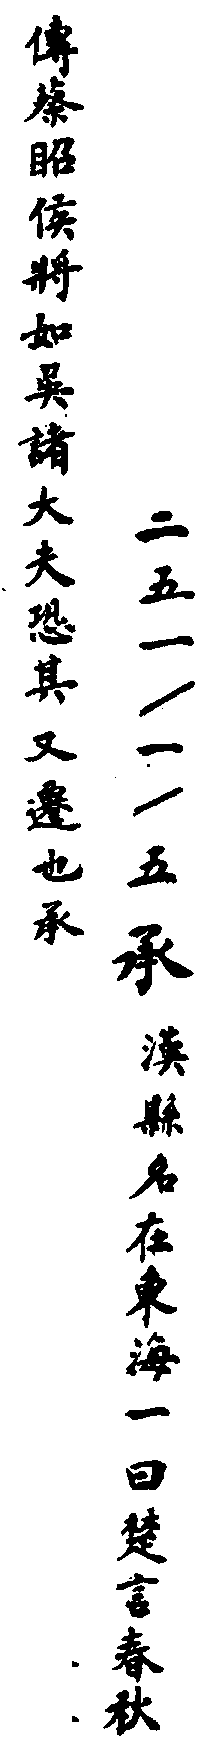 二五一/一/五承漢縣名在東海一曰楚言春秋
傳蔡昭侯將如吳諸大夫恐其又遷也承